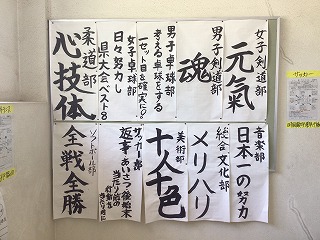 女子剣道部
元氣
男子剣道部
魂
男子卓球部
考える卓球をする
一セット目を確実に!
女子卓球部
日々努力し
県大会ベスト8
柔道部
心技体
音楽部
日本一の努力
総合文化部
メリハリ
美術部
十人十色
サッカー部
返事あいさつ後始末
当たり前の
ソフトボール部
全戦全勝
サッカー